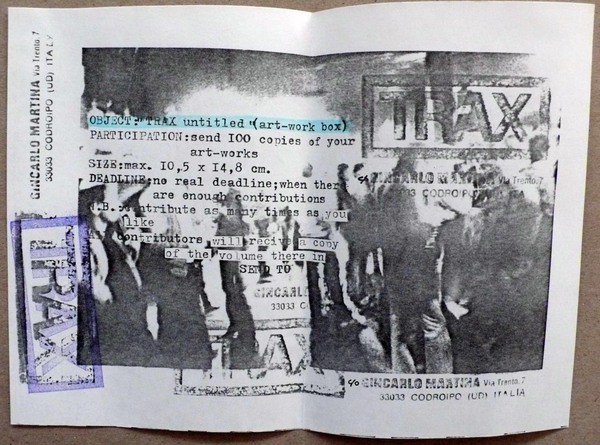 OBJECT:"TRAX untitled "(art-work box)
PARTICIPATION:send I00 copies of your
art-works
SIZE:max. I0,5 x I4,8 cm.
DEADLINE:no real deadline;when there
are enough contributions
N.B.:contribute as many times as you
like
contributors will recive a copy
of the volume there in
SEND TO
TRAX
c/o GINCARLO MARTINA Via Trento, 7
33033 CODROIPO (UD) ITA
GINCARLO MARTINA Via Trento. 7
33033 CODROIPO (UD) ITALY
TRAX
GINCARL
33033 C
TRAX
c/o GINCARLO MARTINA Via Trento, 7
33033 CODROIPO (UD) ITALIA